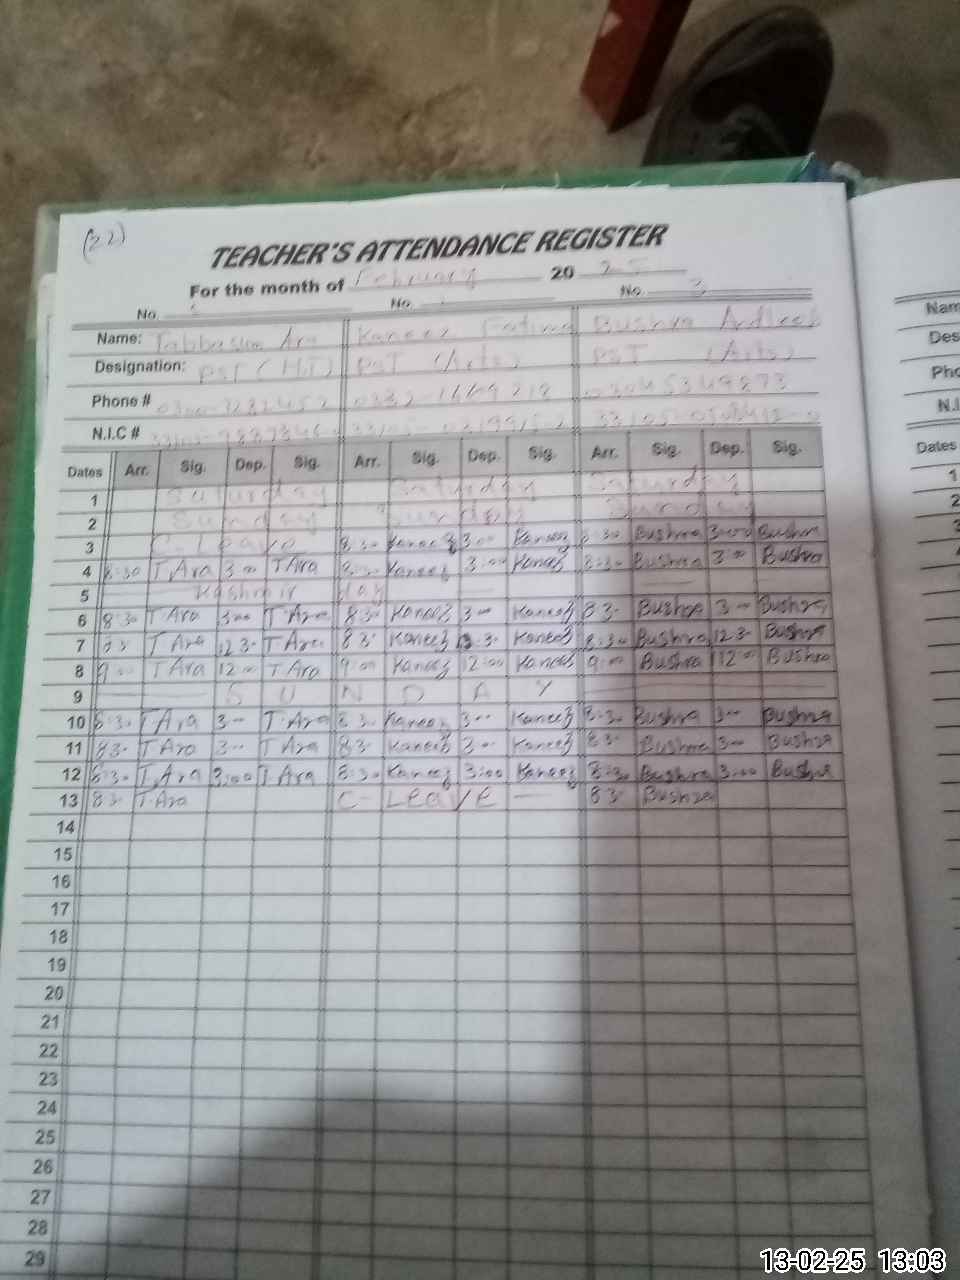 (22)
TEACHER'S ATTENDANCE REGISTER
For the month of February 20 25
No. No. No. 3
Name: Tabbasum Ara Kaneez Fatima Bushra Andleeb
Designation: PST (H.T) PST (Arts) PST (Arts)
Phone #
N.I.C #
Dates Arr. Sig. Dep. Sig. Arr. Sig. Dep. Sig. Arr. Sig. Dep. Sig.
1 Saturday Saturday Saturday
2 Sunday Sunday Sunday
3 C-Leave 8:30 Kaneez 3:00 Kaneez 8:30 Bushra 3:00 Bushra
4 8:30 T.Ara 3:00 T.Ara 8:30 Kaneez 3:00 Kaneez 8:30 Bushra 3:00 Bushra
5 Kashmir day
6 8:30 T.Ara 3:00 T.Ara 8:30 Kaneez 3:00 Kaneez 8:30 Bushra 3:00 Bushra
7 8:30 T.Ara 12:30 T.Ara 8:30 Kaneez 12:30 Kaneez 8:30 Bushra 12:30 Bushra
8 9:00 T.Ara 12:00 T.Ara 9:00 Kaneez 12:00 Kaneez 9:00 Bushra 12:00 Bushra
9 S U N D A Y
10 8:30 T.Ara 3:00 T.Ara 8:30 Kaneez 3:00 Kaneez 8:30 Bushra 3:00 Bushra
11 8:30 T.Ara 3:00 T.Ara 8:30 Kaneez 3:00 Kaneez 8:30 Bushra 3:00 Bushra
12 8:30 T.Ara 3:00 T.Ara 8:30 Kaneez 3:00 Kaneez 8:30 Bushra 3:00 Bushra
13 8:30 T.Ara C-Leave 8:30 Bushra
14
15
16
17
18
19
20
21
22
23
24
25
26
27
28
29
N.I
Dates
1
2
13-02-25 13:03